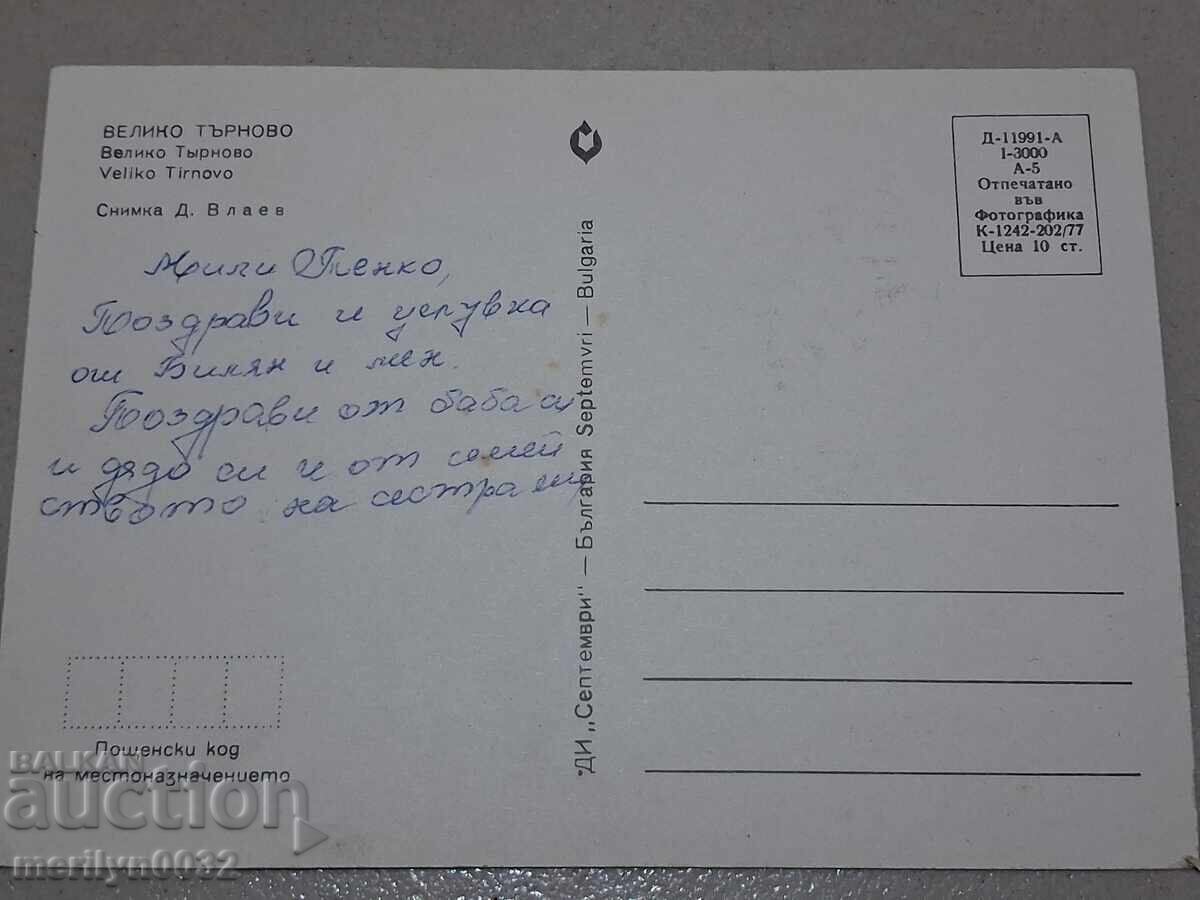 ВЕЛИКО ТЪРНОВО
Велико Тырново
Veliko Tirnovo
Снимка Д. Влаев
Мили Пенко,
Поздрави и целувка
от Билян и мен.
Поздрави от баба си
и дядо си и от семей
ството на сестра ми
Пощенски код
на местоназначението
ДИ „Септември" — България Septemvri — Bulgaria
Д-11991-А
1-3000
А-5
Отпечатано
във
Фотографика
К-1242-202/77
Цена 10 ст.
BALKAN
auction
merilyn0032